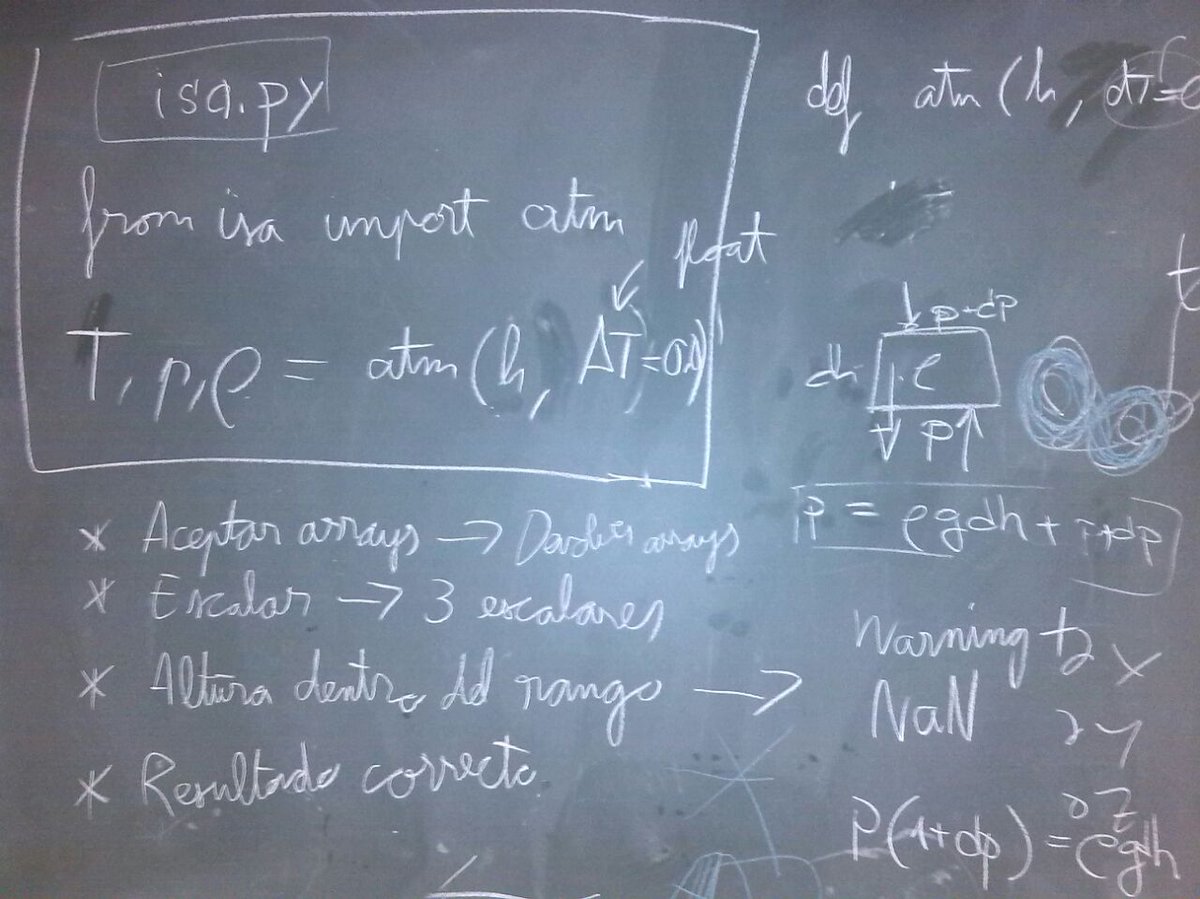 isa.py
from isa import atm
float
T, p, ρ = atm(h, ΔT=0.)
* Aceptar arrays → Devolver arrays
* Escalar → 3 escalares
* Altura dentro del rango →
* Resultado correcto
def atm(h, dT=0
p+dp
dh ρ
p
P = ρgdh + p+dp
Warning
NaN
P(1+dp) = ρgdh